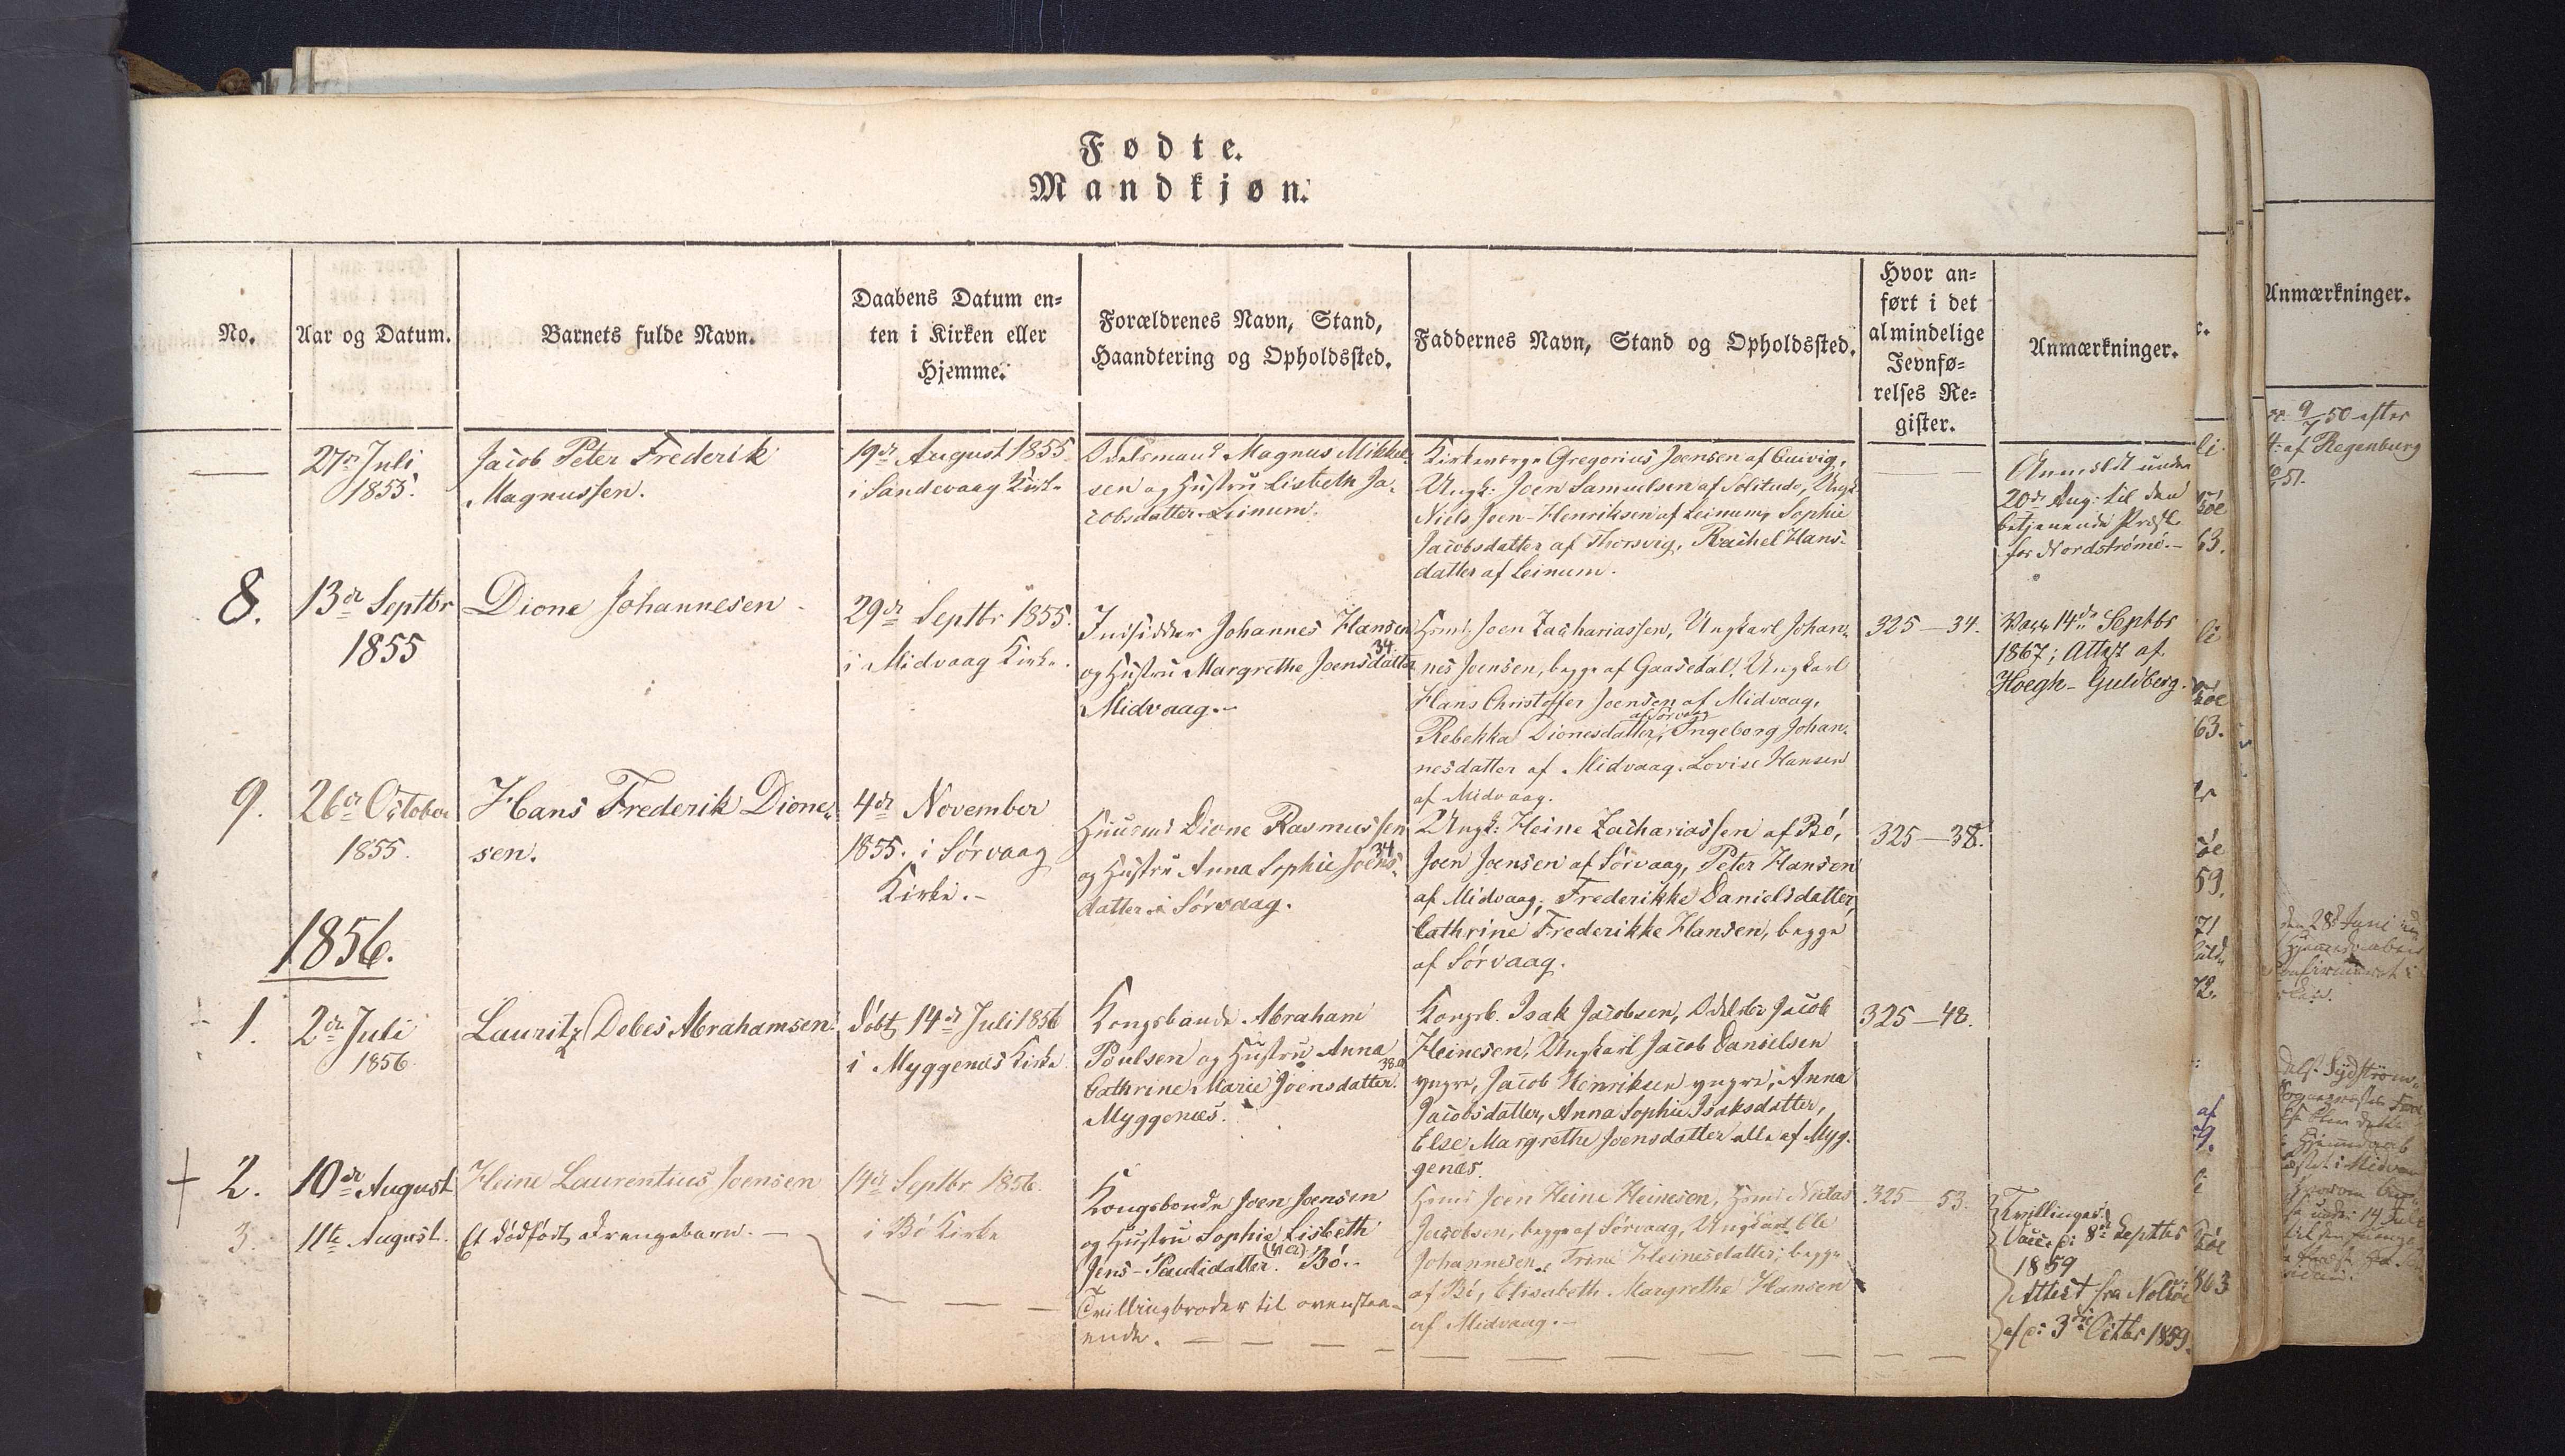 Fødte.
Mandkjøn.
No.
Aar og Datum.
Barnets fulde Navn.
Daabens Datum en-
ten i Kirken eller
Hjemme.
Forældrenes Navn, Stand,
Haandtering og Opholdssted.
Faddernes Navn, Stand og Opholdssted.
Hvor an-
ført i det
almindelige
Jevnfø-
relses Re-
gister.
Anmærkninger.
27de Juli
1855.
Jacob Peter Frederik
Magnussen.
19de August 1855
i Sandevaag Kirke
Odelsmand Magnus Mikkel-
sen og Hustru Lisbeth Ja-
cobsdatter Leinum.
Kirkeværge Gregorius Joensen af Qvivig,
Ungk: Joen Samuelsen af Solitude, Ungk
Niels Joen-Henriksen af Leinum, Sophie
Jacobsdatter af Thorsvig, Rachel Hans-
datter af Leinum.
Anmeldt under
20de Aug: til den
betjenende Præst
for Nordstrømø.-
8.
13de Septbr
1855
Dione Johannesen
29de Septbr 1855.
i Midvaag Kirke.
Indsidder Johannes Hansen
34.
og Hustru Margrethe Joensdatter
Midvaag.-
Hsmd. Joen Zachariassen, Ungkarl Johan-
nes Joensen, begge af Gaasedal, Ungkarl
Hans Christoffer Joensen af Midvaag,
af Sørvaag
Rebekka Dionesdatter, Ingeborg Johan-
nesdatter af Midvaag. Lovise Hansen
af Midvaag.
325-34.
Vacc. 14de Septbr
1867; Attest af
Hoegh-Guldberg.
9.
26de October
1855.
Hans Frederik Dione-
sen.
4de November
1855. i Sørvaag
Kirke.-
Huusmd Dione Rasmussen
34
og Hustru Anna Sophie Joens-
datter i Sørvaag.
Ungk: Heine Zachariassen af Bø,
Joen Joensen af Sørvaag, Peter Hansen
af Midvaag, Frederikke Danielsdatter,
Cathrine Frederikke Hansen, begge
af Sørvaag.
325-38.
1856.
1.
2den Juli
1856.
Lauritz Debes Abrahamsen
døbt 14de Juli 1856
i Myggenæs Kirke
Kongsbonde Abraham
Poulsen og Hustru Anna
38.
Cathrine Marie Joensdatter.
Myggenæs.
Kongsb. Isak Jacobsen, Odelsb. Jacob
Heinesen, Ungkarl Jacob Danielsen
yngre, Jacob Henriksen yngre, Anna
Jacobsdatter, Anna Sophie Isaksdatter,
Else Margrethe Joensdatter alle af Myg-
genæs.
325-48.
+ 2.
10de August
Heine Laurentius Joensen
14de Septbr 1856.
i Bø Kirke
Kongsbonde Joen Joensen
og Hustru Sophie Lisbeth
Jens-Paulidatter. Bø.-
Hsmd Joen Heine Heinesen, Hsmd Niclas
Jacobsen, begge af Sørvaag, Ungkarl Ole
Johannesen, Trine Heinesdatter, begge
af Bø, Elisabeth Margrethe Hansen
af Midvaag.-
325-53.
Tvillinger.
Vacc. d: 8de Septbr
1859
Attest fra Nolsøe
af d: 3die Octbr 1859.
3.
11te August.
Et dødfødt Drengebarn.-
Tvillingbroder til ovenstaa-
ende.
Anmærkninger.
9/7 50 efter
af Regenburg